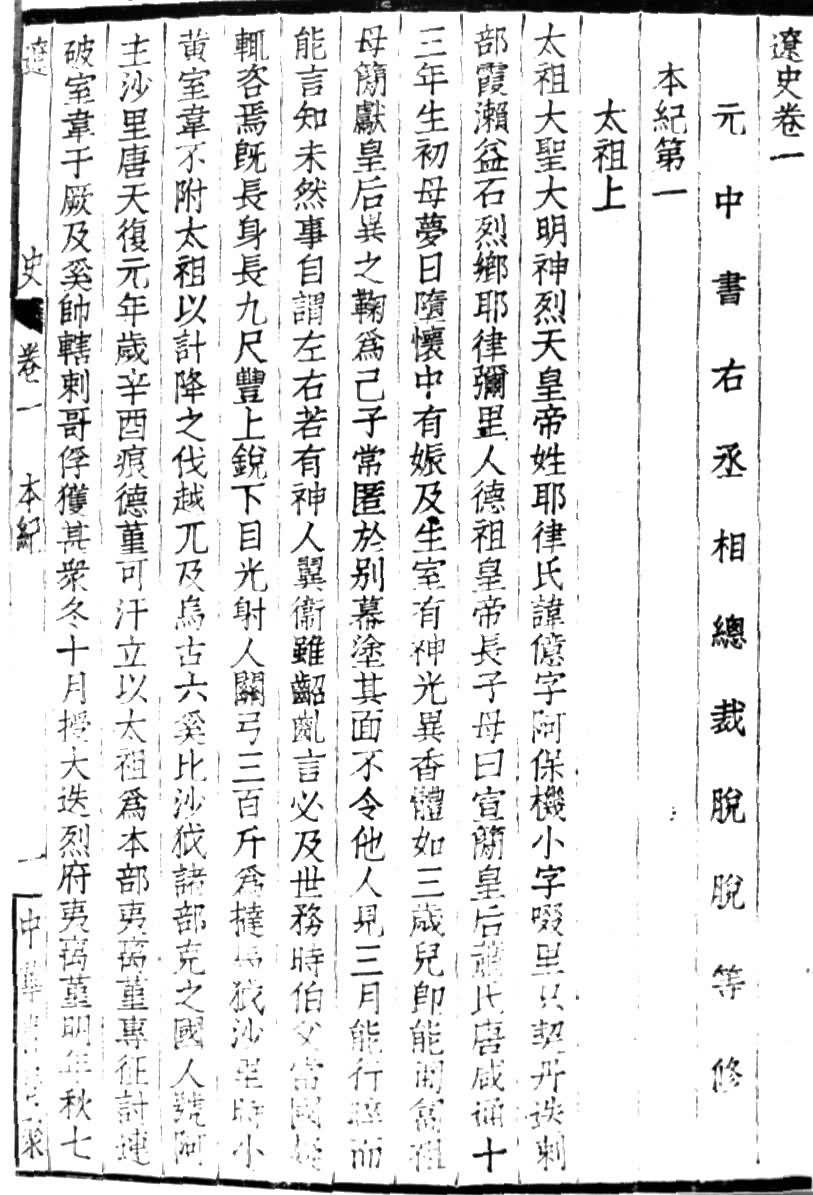 遼史卷一
元中書右丞相總裁脫脫等修
本紀第一
太祖上
太祖大聖大明神烈天皇帝姓耶律氏諱億字阿保機小字啜里只契丹迭剌
部霞瀨益石烈鄉耶律彌里人德祖皇帝長子母曰宣簡皇后蕭氏唐咸通十
三年生初母夢日墮懷中有娠及生室有神光異香體如三歲兒卽能匍匐祖
母簡獻皇后異之鞠爲己子常匿於別幕塗其面不令他人見三月能行晬而
能言知未然事自謂左右若有神人翼衞雖齠齔言必及世務時伯父當國疑
輒咨焉旣長身長九尺豐上銳下目光射人關弓三百斤爲撻馬狘沙里時小
黃室韋不附太祖以計降之伐越兀及烏古六奚比沙狘諸部克之國人號阿
主沙里唐天復元年歲辛酉痕德菫可汗立以太祖爲本部夷离菫專征討連
破室韋于厥及奚帥轄剌哥俘獲甚衆冬十月授大迭烈府夷离菫明年秋七
遼史 卷一 本紀 一 中華書局聚